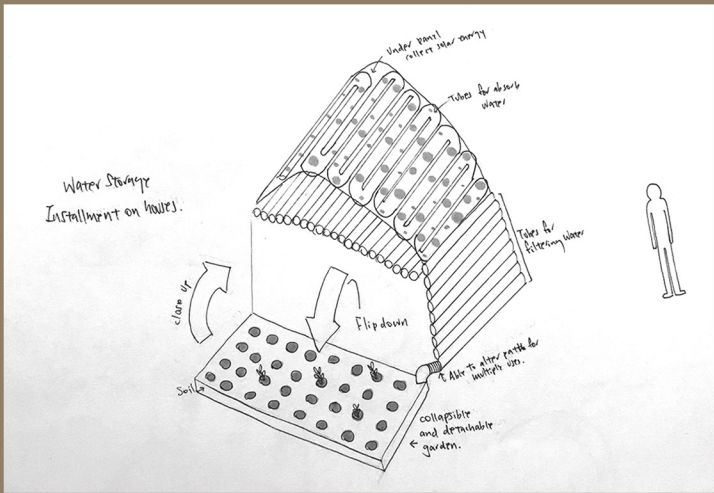 Under panel
collect solar energy
Tubes for absorb
water
Water Storage
Installment on houses.
Tubes for
filtering water
close up
Flip down
Able to alter paths for
multiple uses.
Soil
collapsible
and detachable
garden.